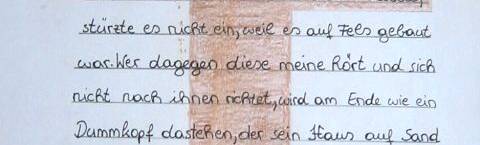 stürzte es nicht ein, weil es auf Fels gebaut
war. Wer dagegen diese meine hört und sich
nicht nach ihnen richtet, wird am Ende wie ein
Dummkopf dastehen, der sein Haus auf Sand